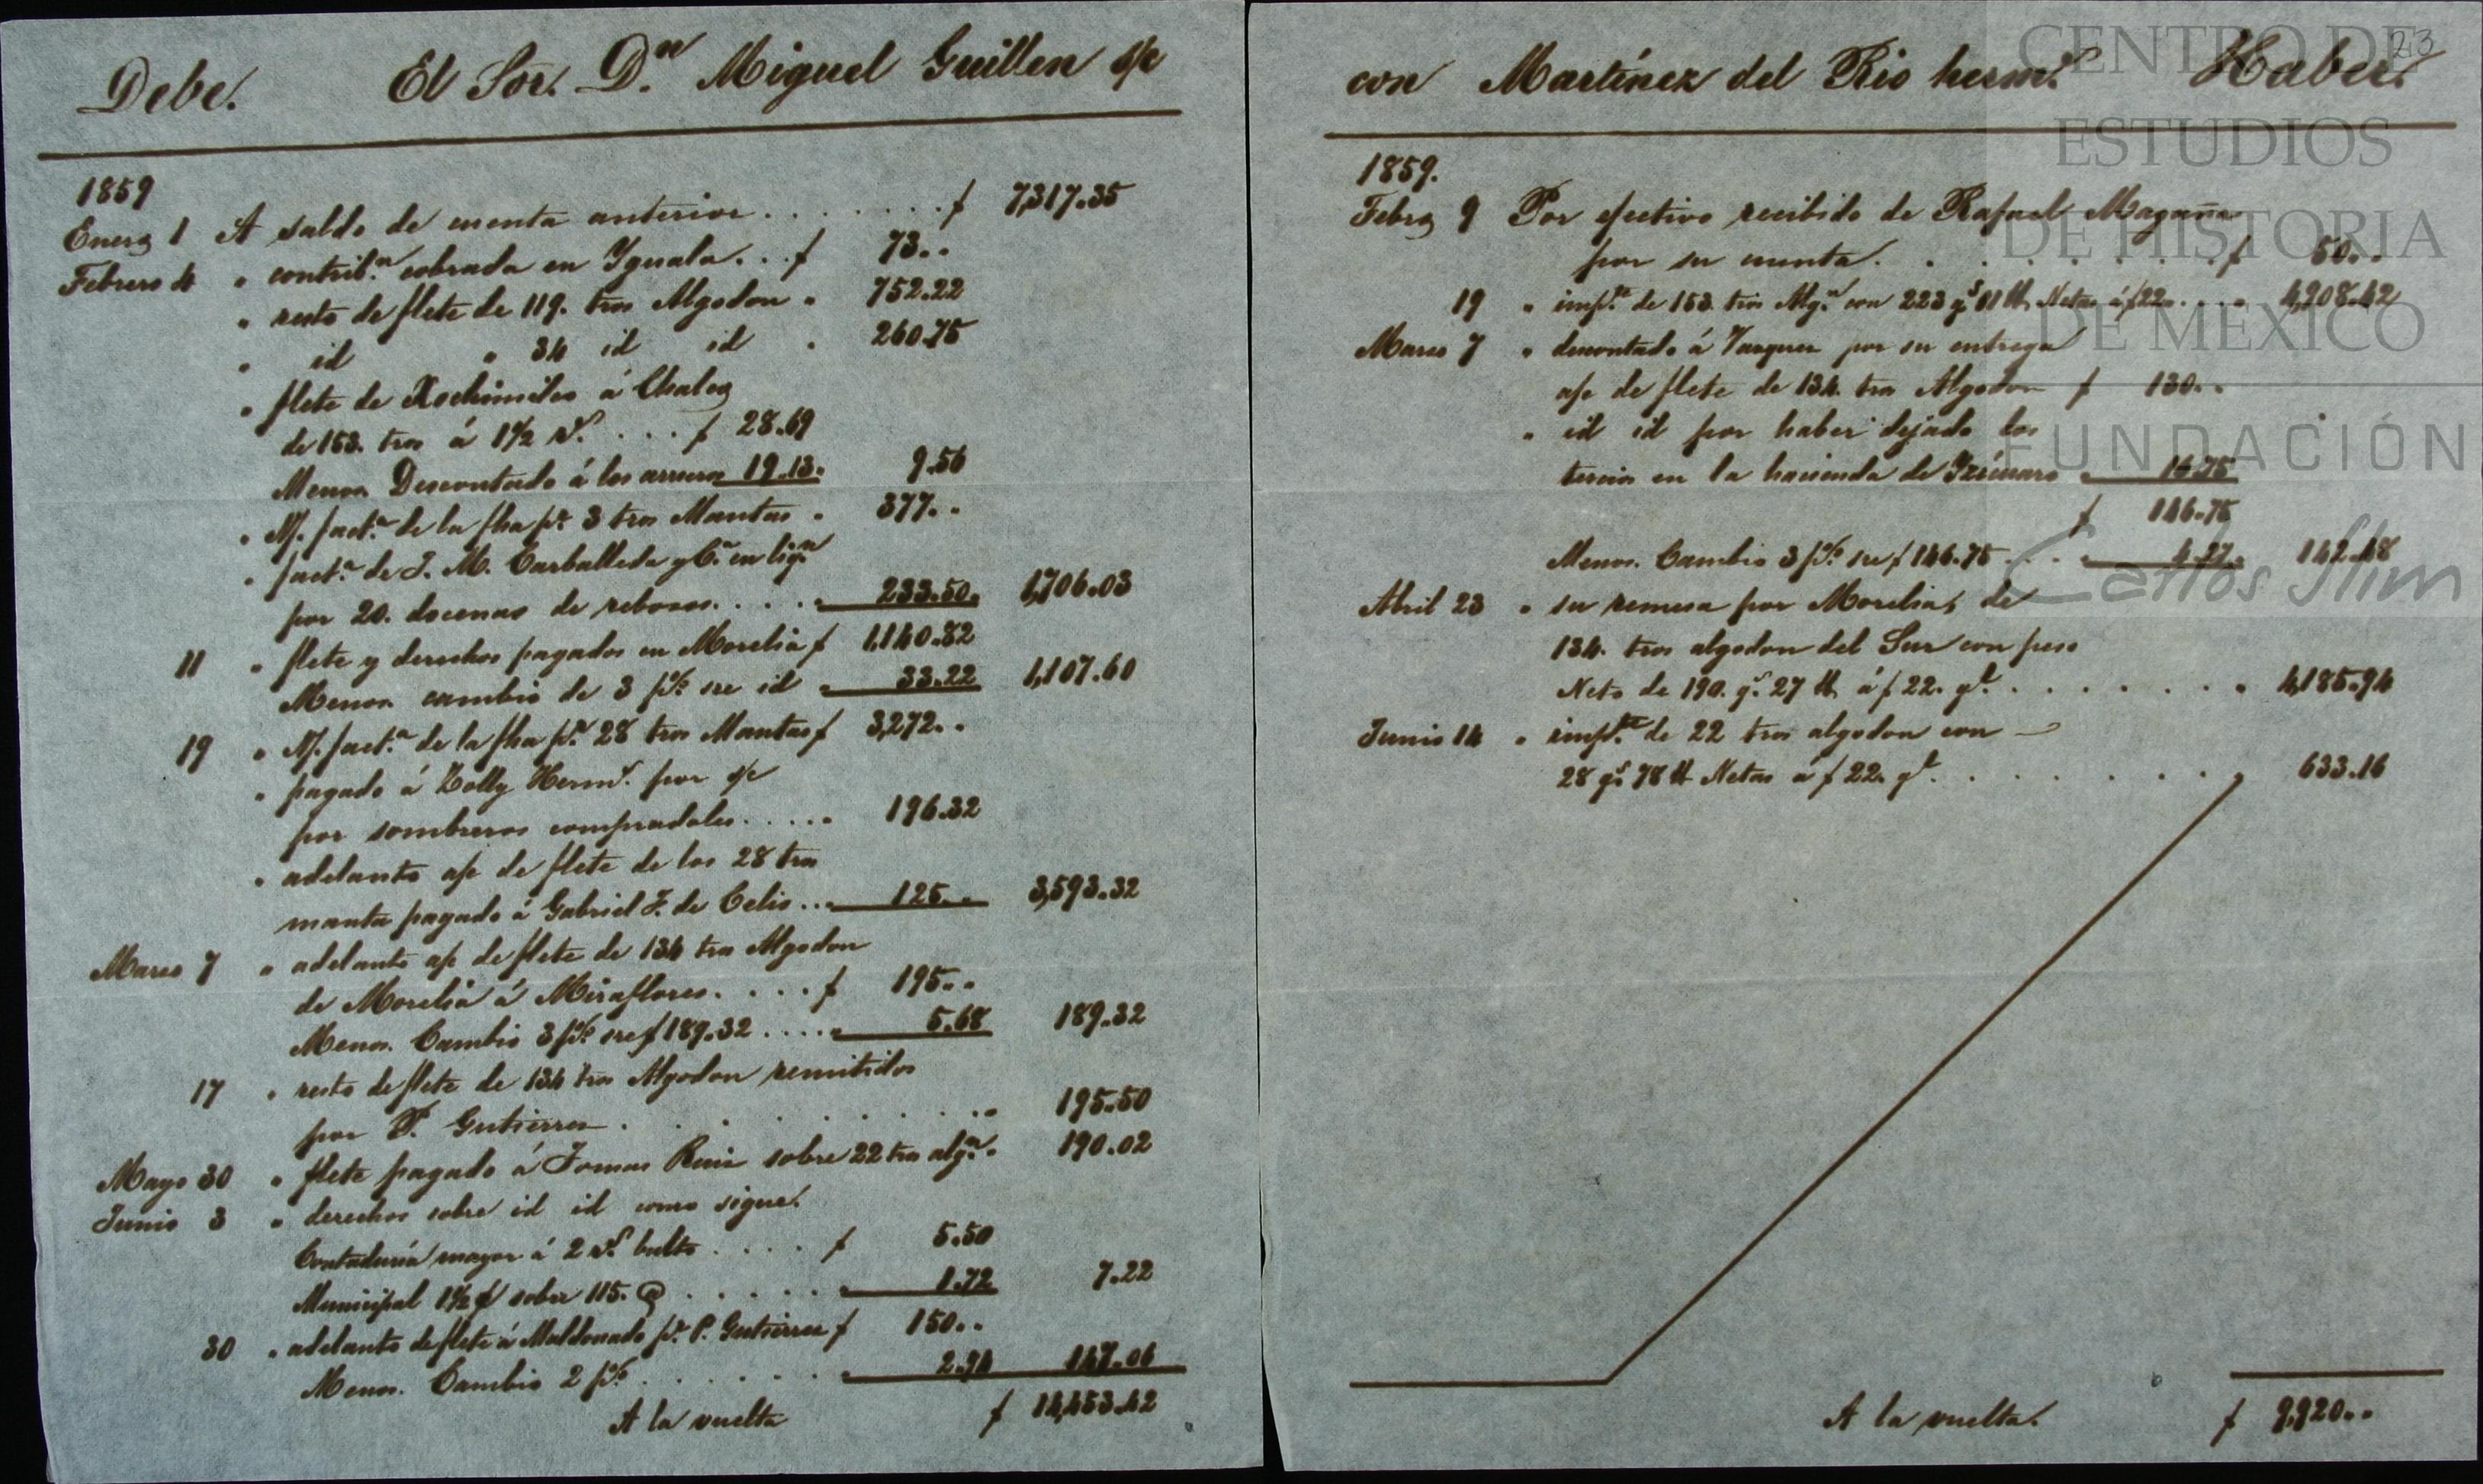 Debe. El Sor. Dn. Miguel Guillen s/c
1859
Enero 1 A saldo de cuenta anterior . . . . . . . $ 7,317.35
Febrero 4 " contribn. cobrada en Yguala . . . $ 73. .
" resto de flete de 119. tros Algodon " 752.22
" id " 34 id id " 260.75
" flete de Xochimilco á Chalco
de 153. tros á 1 1/2 rs. . . . $ 28.69
Menos Descontado á los arrieros 19.13. 9.56
" N/. facta. de la fha pr. 3 tros Mantas " 377. .
" facta. de J. M. Carballeda y Ca. en liqn.
por 20. docenas de rebosos . . . . " 233.50. 1,706.03
11 " flete y derechos pagados en Morelia $ 1,140.82
Menos cambio de 3 p% sre id " 33.22 1,107.60
19 " N/. facta. de la fha pr. 28 tros Mantas $ 3,272. .
" pagado á Zolly Herms. por s/c
por sombreros compradoles . . . . . 196.32
" adelanto a/c de flete de los 28 tros
manta pagado á Gabriel F. de Celis . . " 125. . 3,593.32
Marzo 7 " adelanto a/c de flete de 134 tros Algodon
de Morelia á Miraflores . . . . $ 195. .
Menos. Cambio 3 p% sre $ 189.32 . . . . " 5.68 189.32
17 " resto de flete de 134 tros Algodon remitidos
por P. Gutierrez . . . . . . . . . " 195.50
Mayo 30 " flete pagado á Tomas Ruiz sobre 22 tros algn. " 190.02
Junio 3 " derechos sobre id id como sigue.
Contaduría mayor á 2 rs. bulto . . . . $ 5.50
Municipal 1 1/2 ¢ sobre 115. @ . . . . . . " 1.72 7.22
30 " adelanto de flete á Maldonado pr. P. Gutierrez $ 150. .
Menos. Cambio 2 p% . . . . . . . " 2.94 147.06
A la vuelta $ 14,453.42
con Martínez del Rio herms. Haber.
23
1859.
Febro 9 Por efectivo recibido de Rafael Magaña
por su cuenta . . . . . . . . . $ 50. .
19 " impte. de 153. tros Algn. con 223 qs. 01 lb Netas á $ 22 . . . . " 4,908.42
Marzo 7 " descontado á Vazquez por su entrega
a/c de flete de 134. tros Algodon $ 130. .
" id id por haber dejado los
tercios en la hacienda de Yzícuaro " 16.75
$ 146.75
Menos. Cambio 3 p% sre $ 146.75 . . . " 4.27. 142.48
Abril 23 " su remesa por Morelia, de
134. tros algodon del Sur con peso
Neto de 190. qs. 27 lb á $ 22. ql. . . . . . . . . " 4,185.94
Junio 14 " impte. de 22 tros algodon con
28 qs. 78 lb Netas á $ 22. ql. . . . . . . . . " 633.16
A la vuelta. $ 9,920. .
CENTRO DE
ESTUDIOS
DE HISTORIA
DE MEXICO
FUNDACIÓN
Carlos Slim